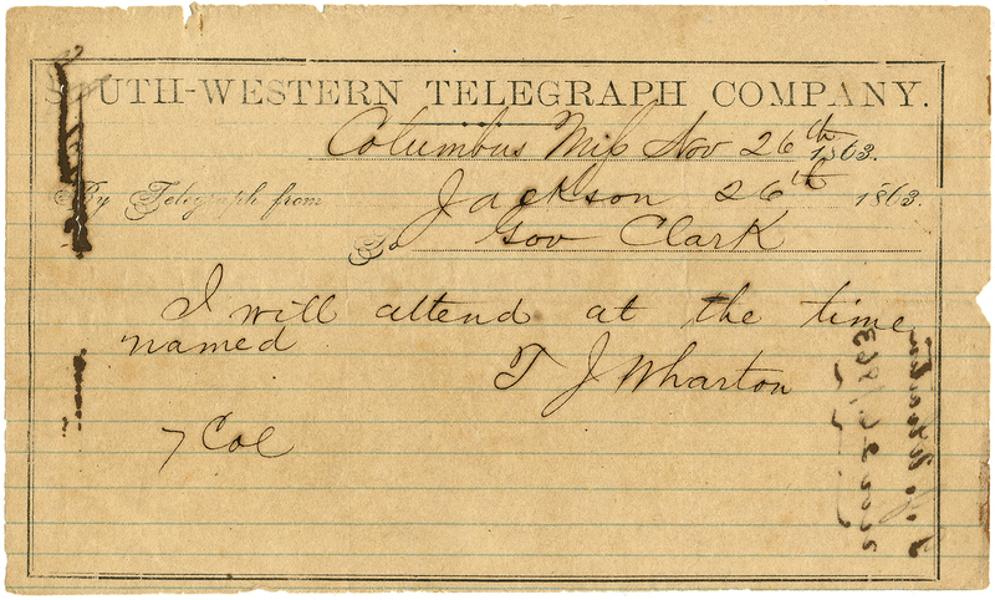 SOUTH-WESTERN TELEGRAPH COMPANY.
Columbus Mis Nov 26th 1863.
By Telegraph from Jackson 26th 1863.
To Gov Clark
I will attend at the time
named
T J Wharton
7 Col